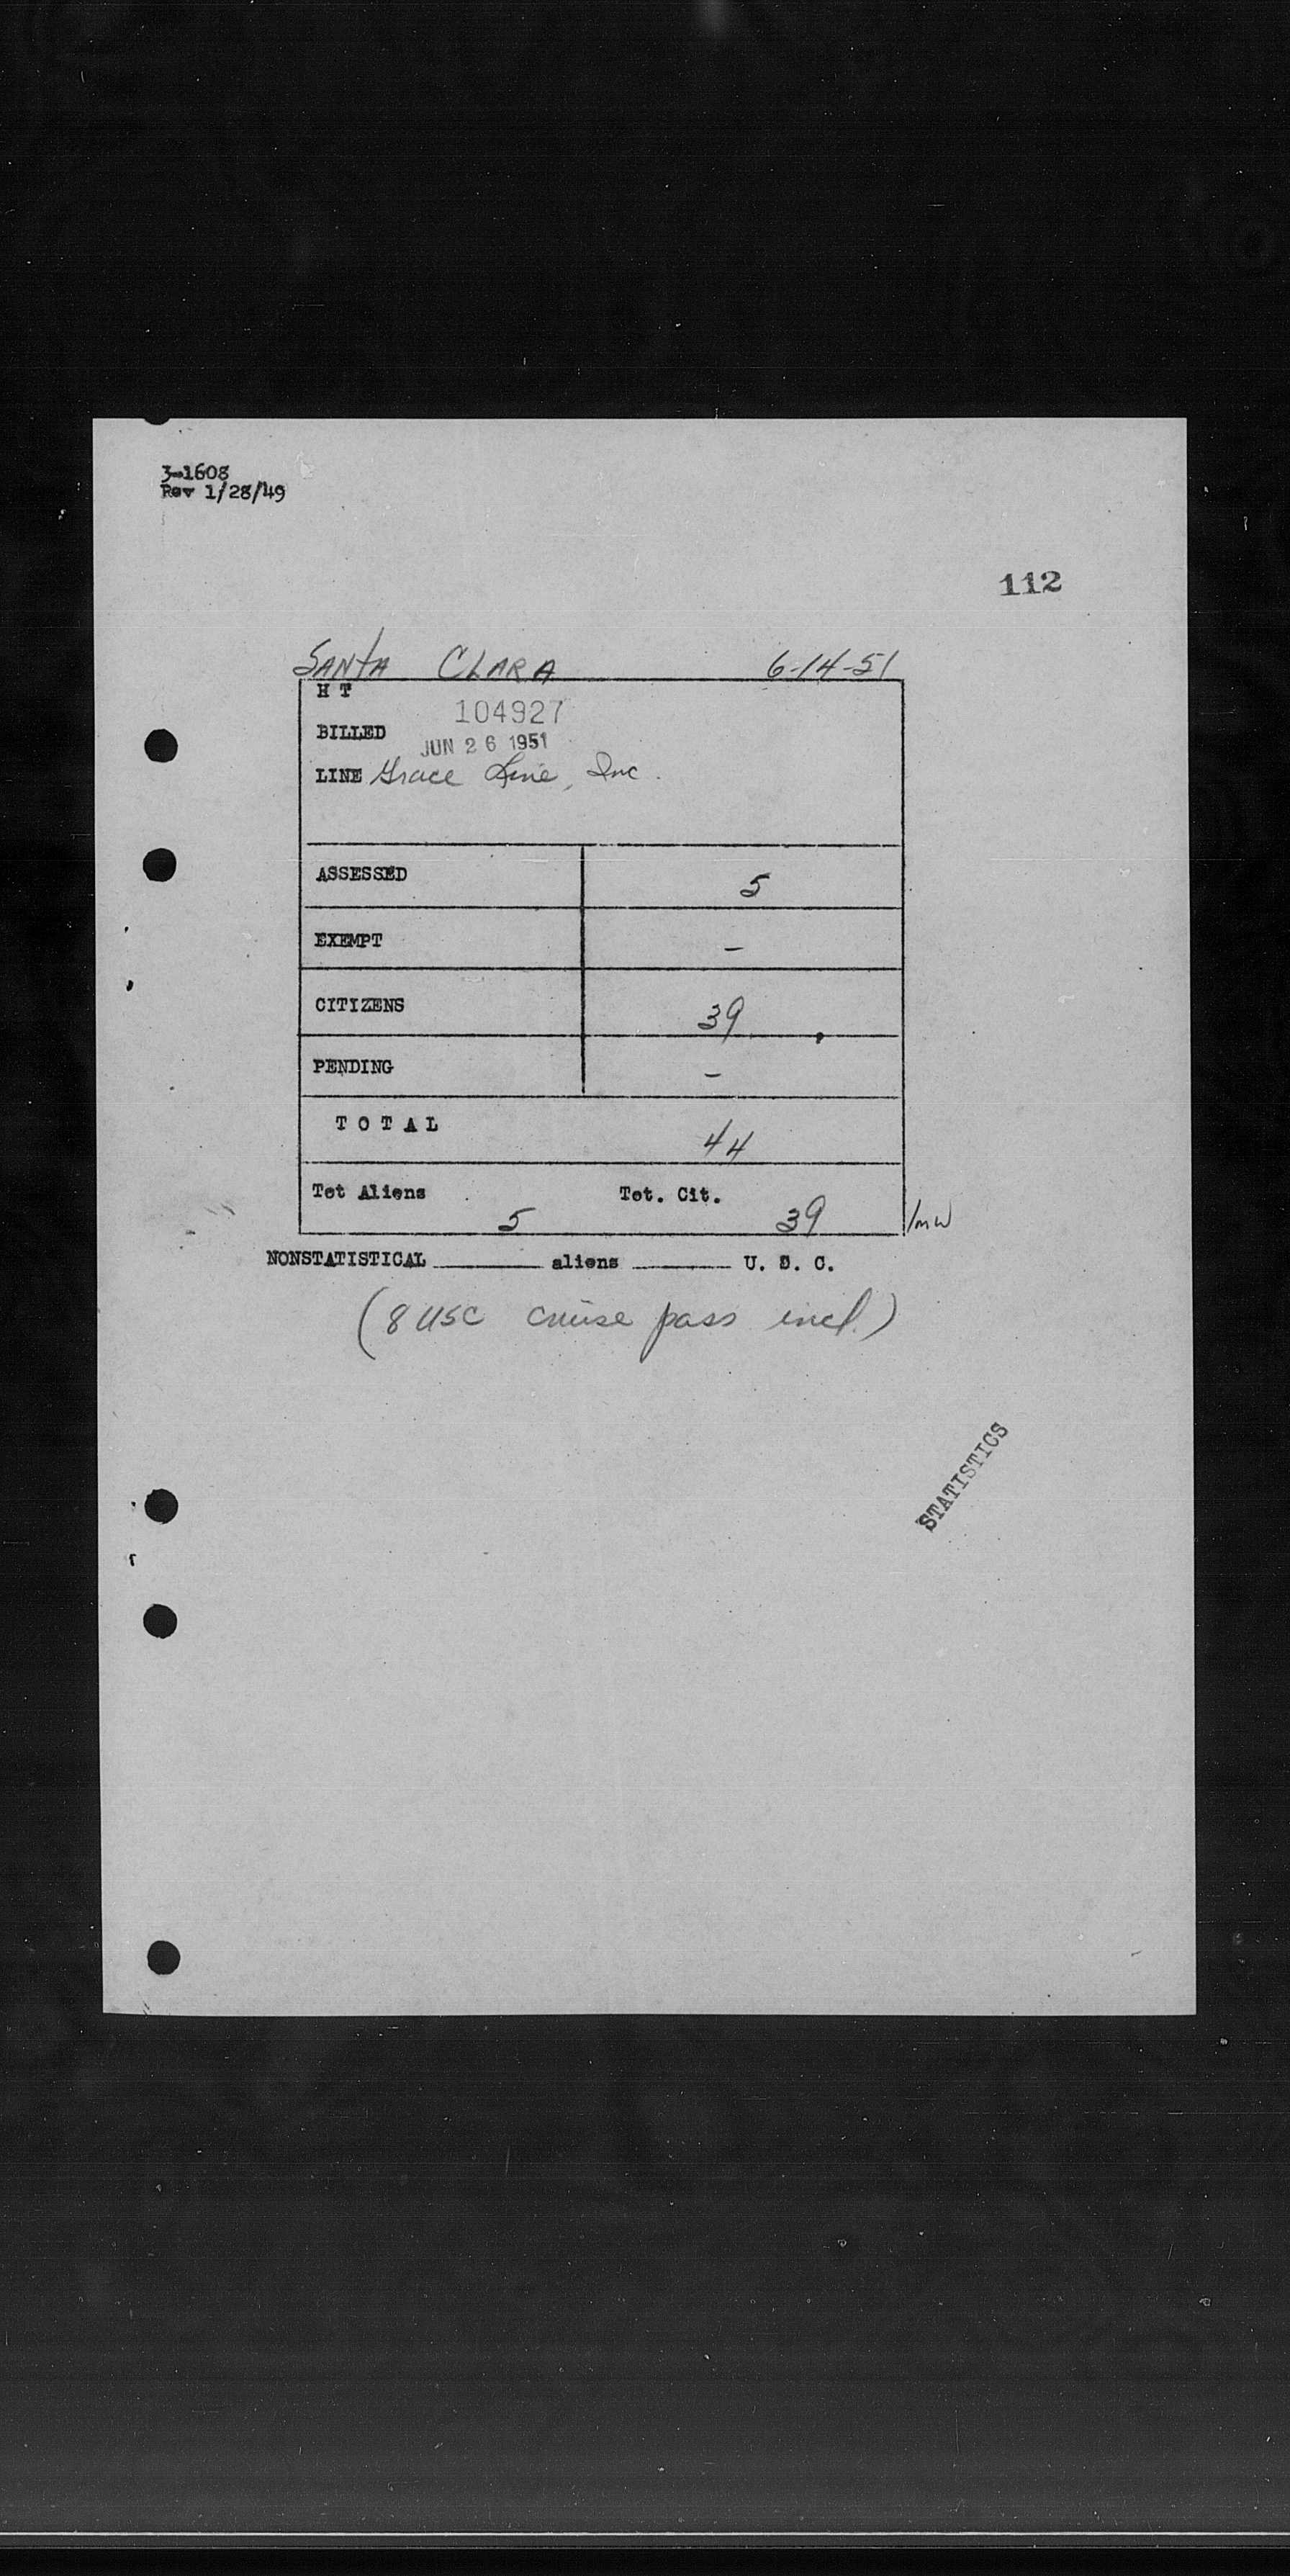 3-1608
Rev 1/28/49
112
SANTA CLARA 6-14-51
H T
104927
BILLED
JUN 26 1951
LINE Grace Line, Inc.
ASSESSED 5
EXEMPT –
CITIZENS 39
PENDING –
T O T A L 44
Tot Aliens Tot. Cit.
5 39 /mw
NONSTATISTICAL ______ aliens ______ U. S. C.
(8 USC cruise pass incl.)
STATISTICS